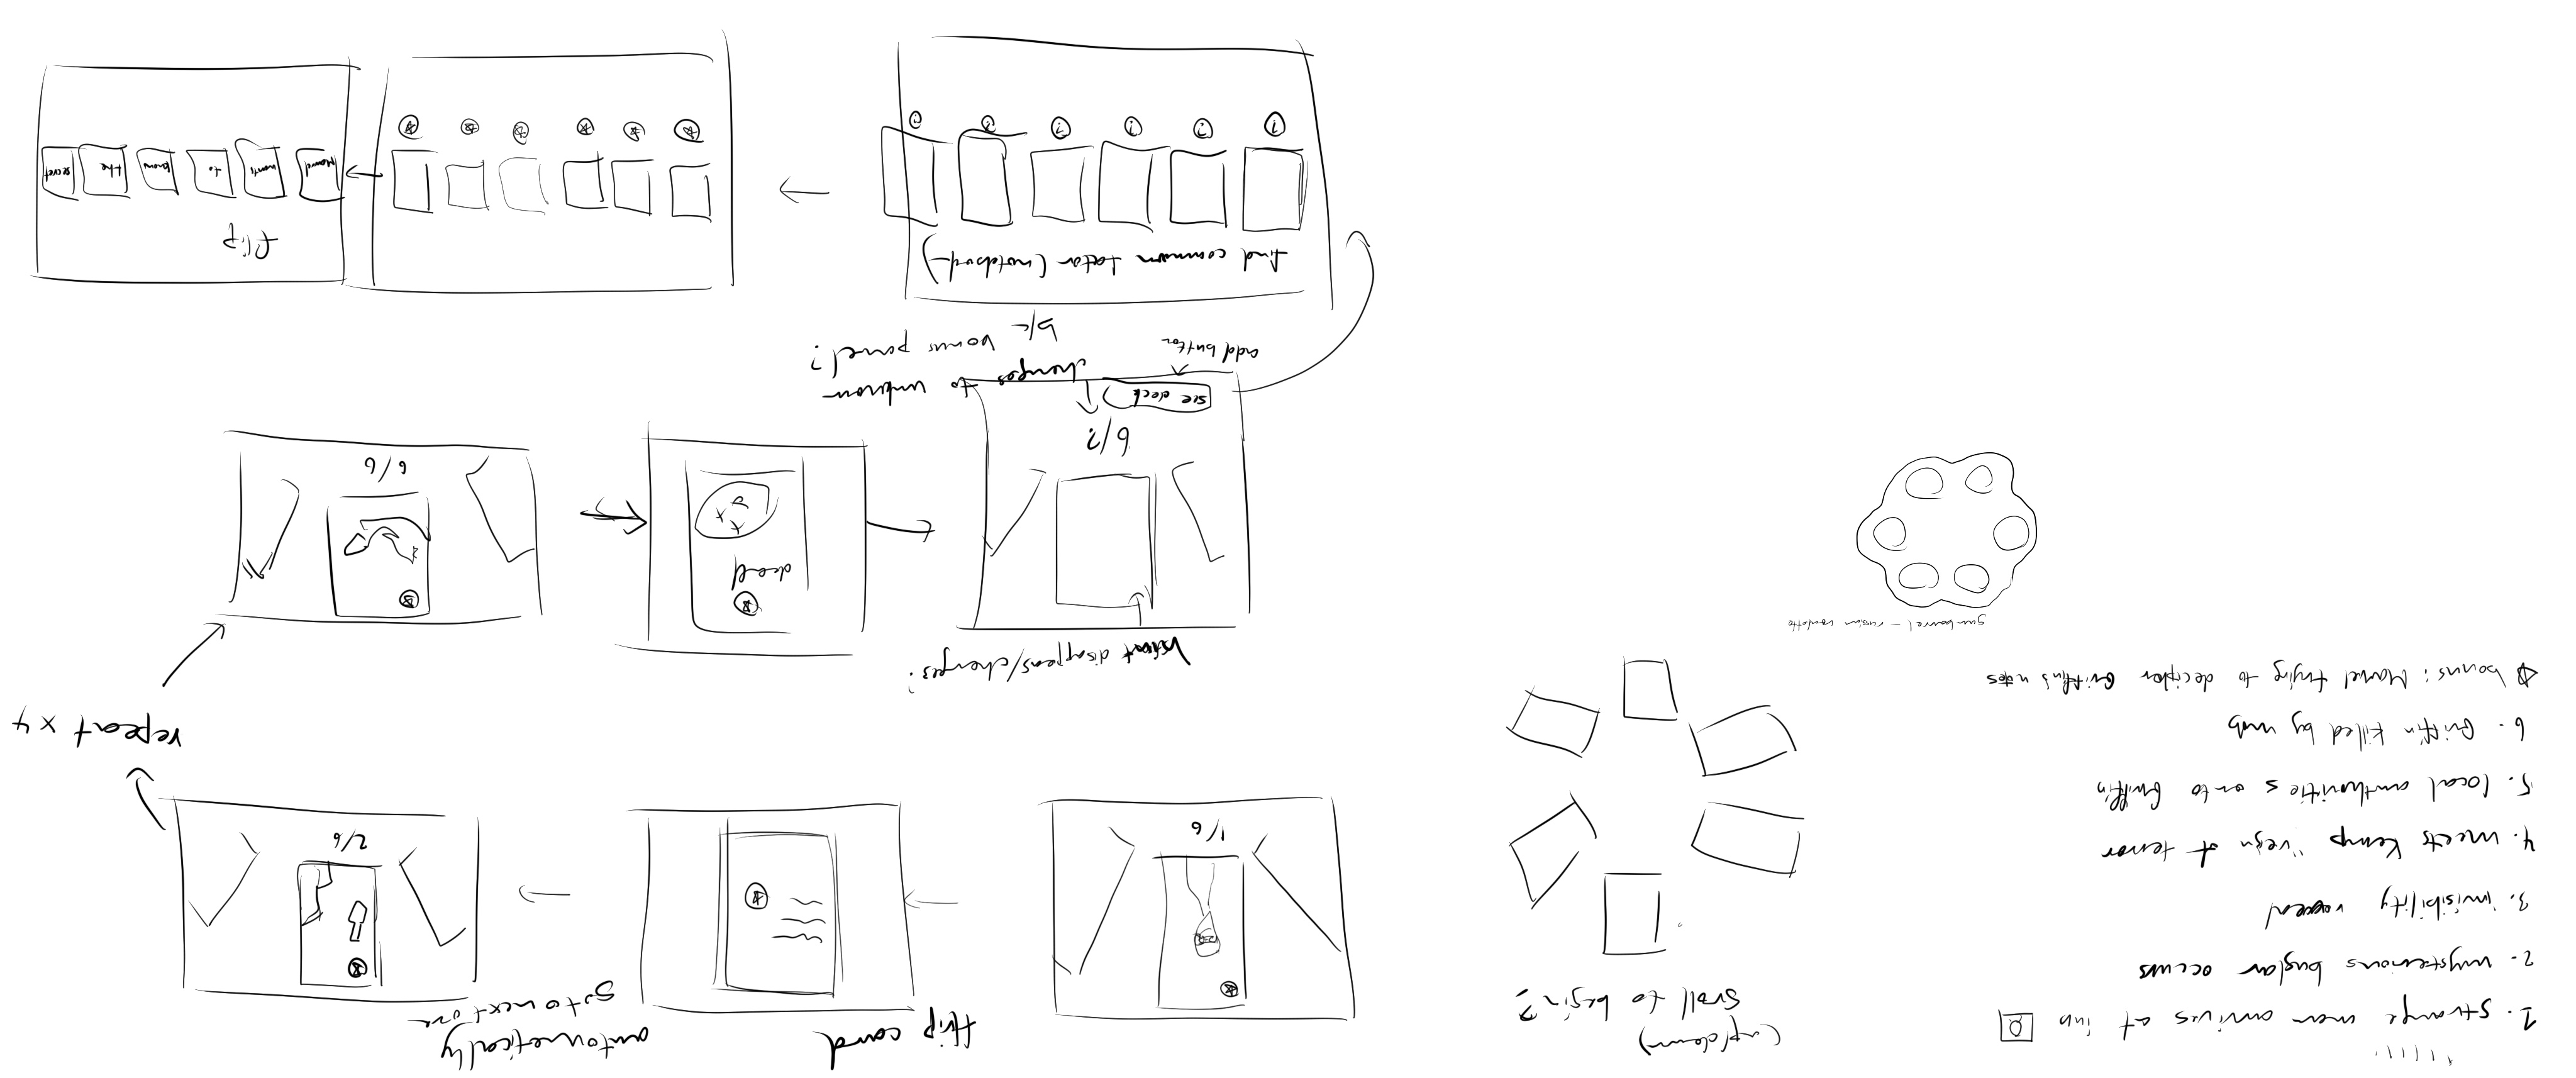 1. strange man arrives at inn
2. mysterious buglar occurs
3. invisibility reveal
4. meets Kemp "regn of terror
5. local authorities onto Griffin
6. Griffin killed by mob
bonus: Marvel trying to decipher Griffin's notes
gun barrel - russian roulette
(up/down)
sroll to begin?
flip card
automatically
go to next one
1/6
2/6
repeat x 4
6/6
dead
disappears/changes?
6/?
see deck
add button
changes to unknown
b/c bonus panel?
find common fator (notebook)
? ? ? ? ? ?
flip
Marvel wants to know the secret